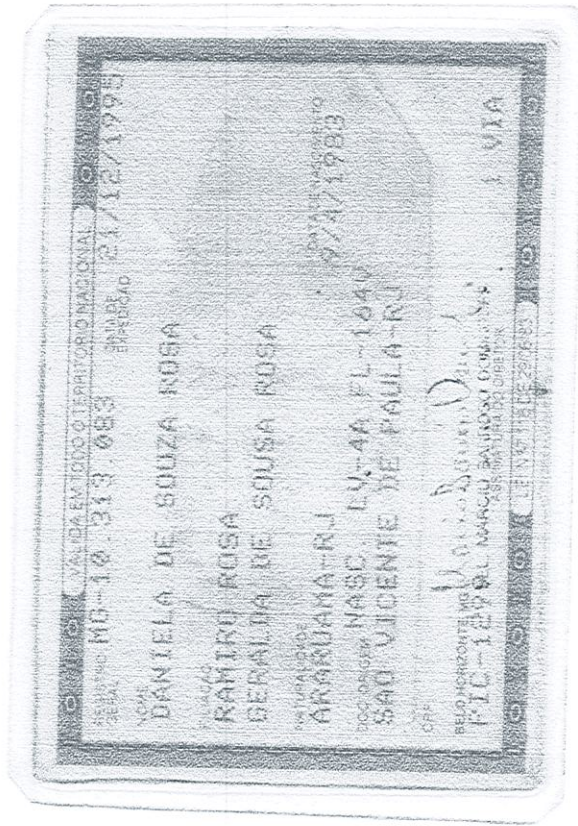 VÁLIDA EM TODO O TERRITÓRIO NACIONAL
REGISTRO GERAL MG-10.313.083 DATA DE EXPEDIÇÃO 21/12/1995
NOME
DANIELA DE SOUZA ROSA
FILIAÇÃO
RAMIRO ROSA
GERALDA DE SOUSA ROSA
NATURALIDADE DATA DE NASCIMENTO
ARARUAMA-RJ 9/4/1983
DOC ORIGEM NASC. LV-4A
SAO VICENTE DE PAULA-RJ
CPF
BELO HORIZONTE-MG
ASSINATURA DO DIRETOR
1 VIA
LEI Nº 7.116 DE 29/08/83